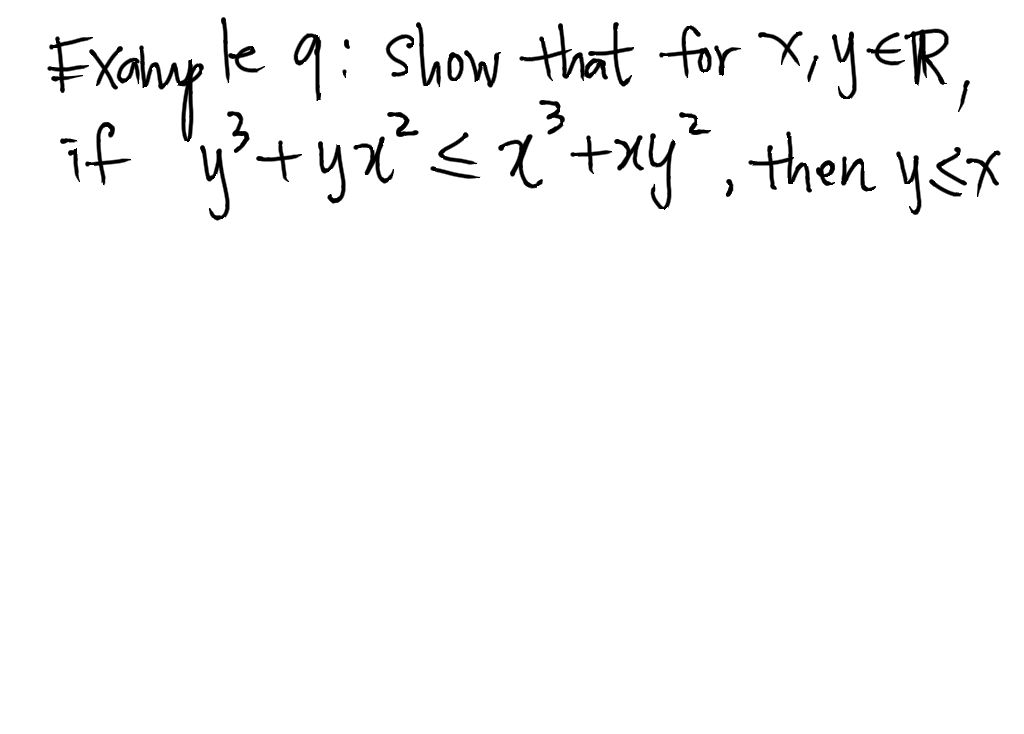 Example 9: Show that for x, y ∈ ℝ,
if y³ + yx² ≤ x³ + xy², then y ≤ x